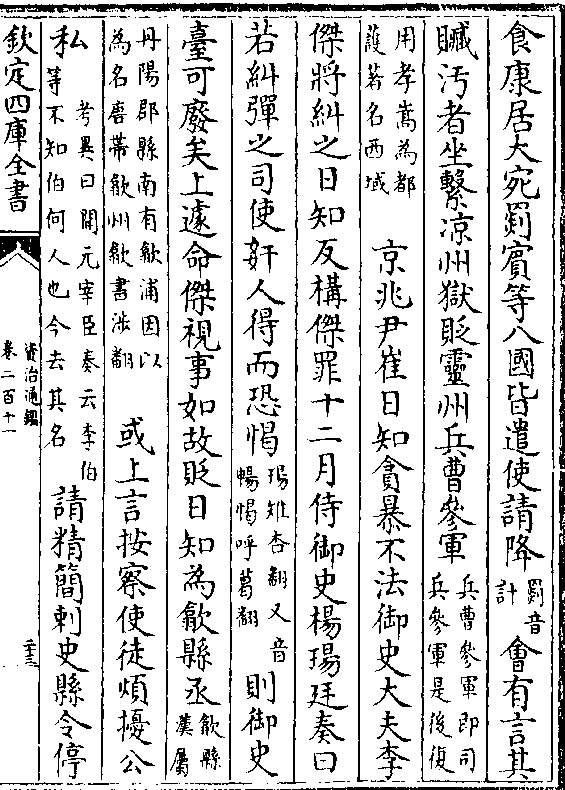 食康居大宛罽賓等八國皆遣使請降罽音計會有言其
贓汚者坐繫凉州獄貶靈州兵曹參軍兵曹參軍即司兵參軍是後復
用孝嵩為都護著名西域京兆尹崔日知貪暴不法御史大夫李
傑將糾之日知反構傑罪十二月侍御史楊瑒廷奏曰
若糾彈之司使姧人得而恐愒瑒雉杏翻又音暢愒呼葛翻則御史
臺可廢矣上遽命傑視事如故貶日知為歙縣丞歙縣漢屬
丹陽郡縣南有歙浦因以為名唐帶歙州歙書涉翻或上言按察使徒煩擾公
私考異曰開元宰臣奏云李伯等不知伯何人也今去其名請精簡刺史縣令停
欽定四庫全書
資治通鑑
卷二百十一
二十三